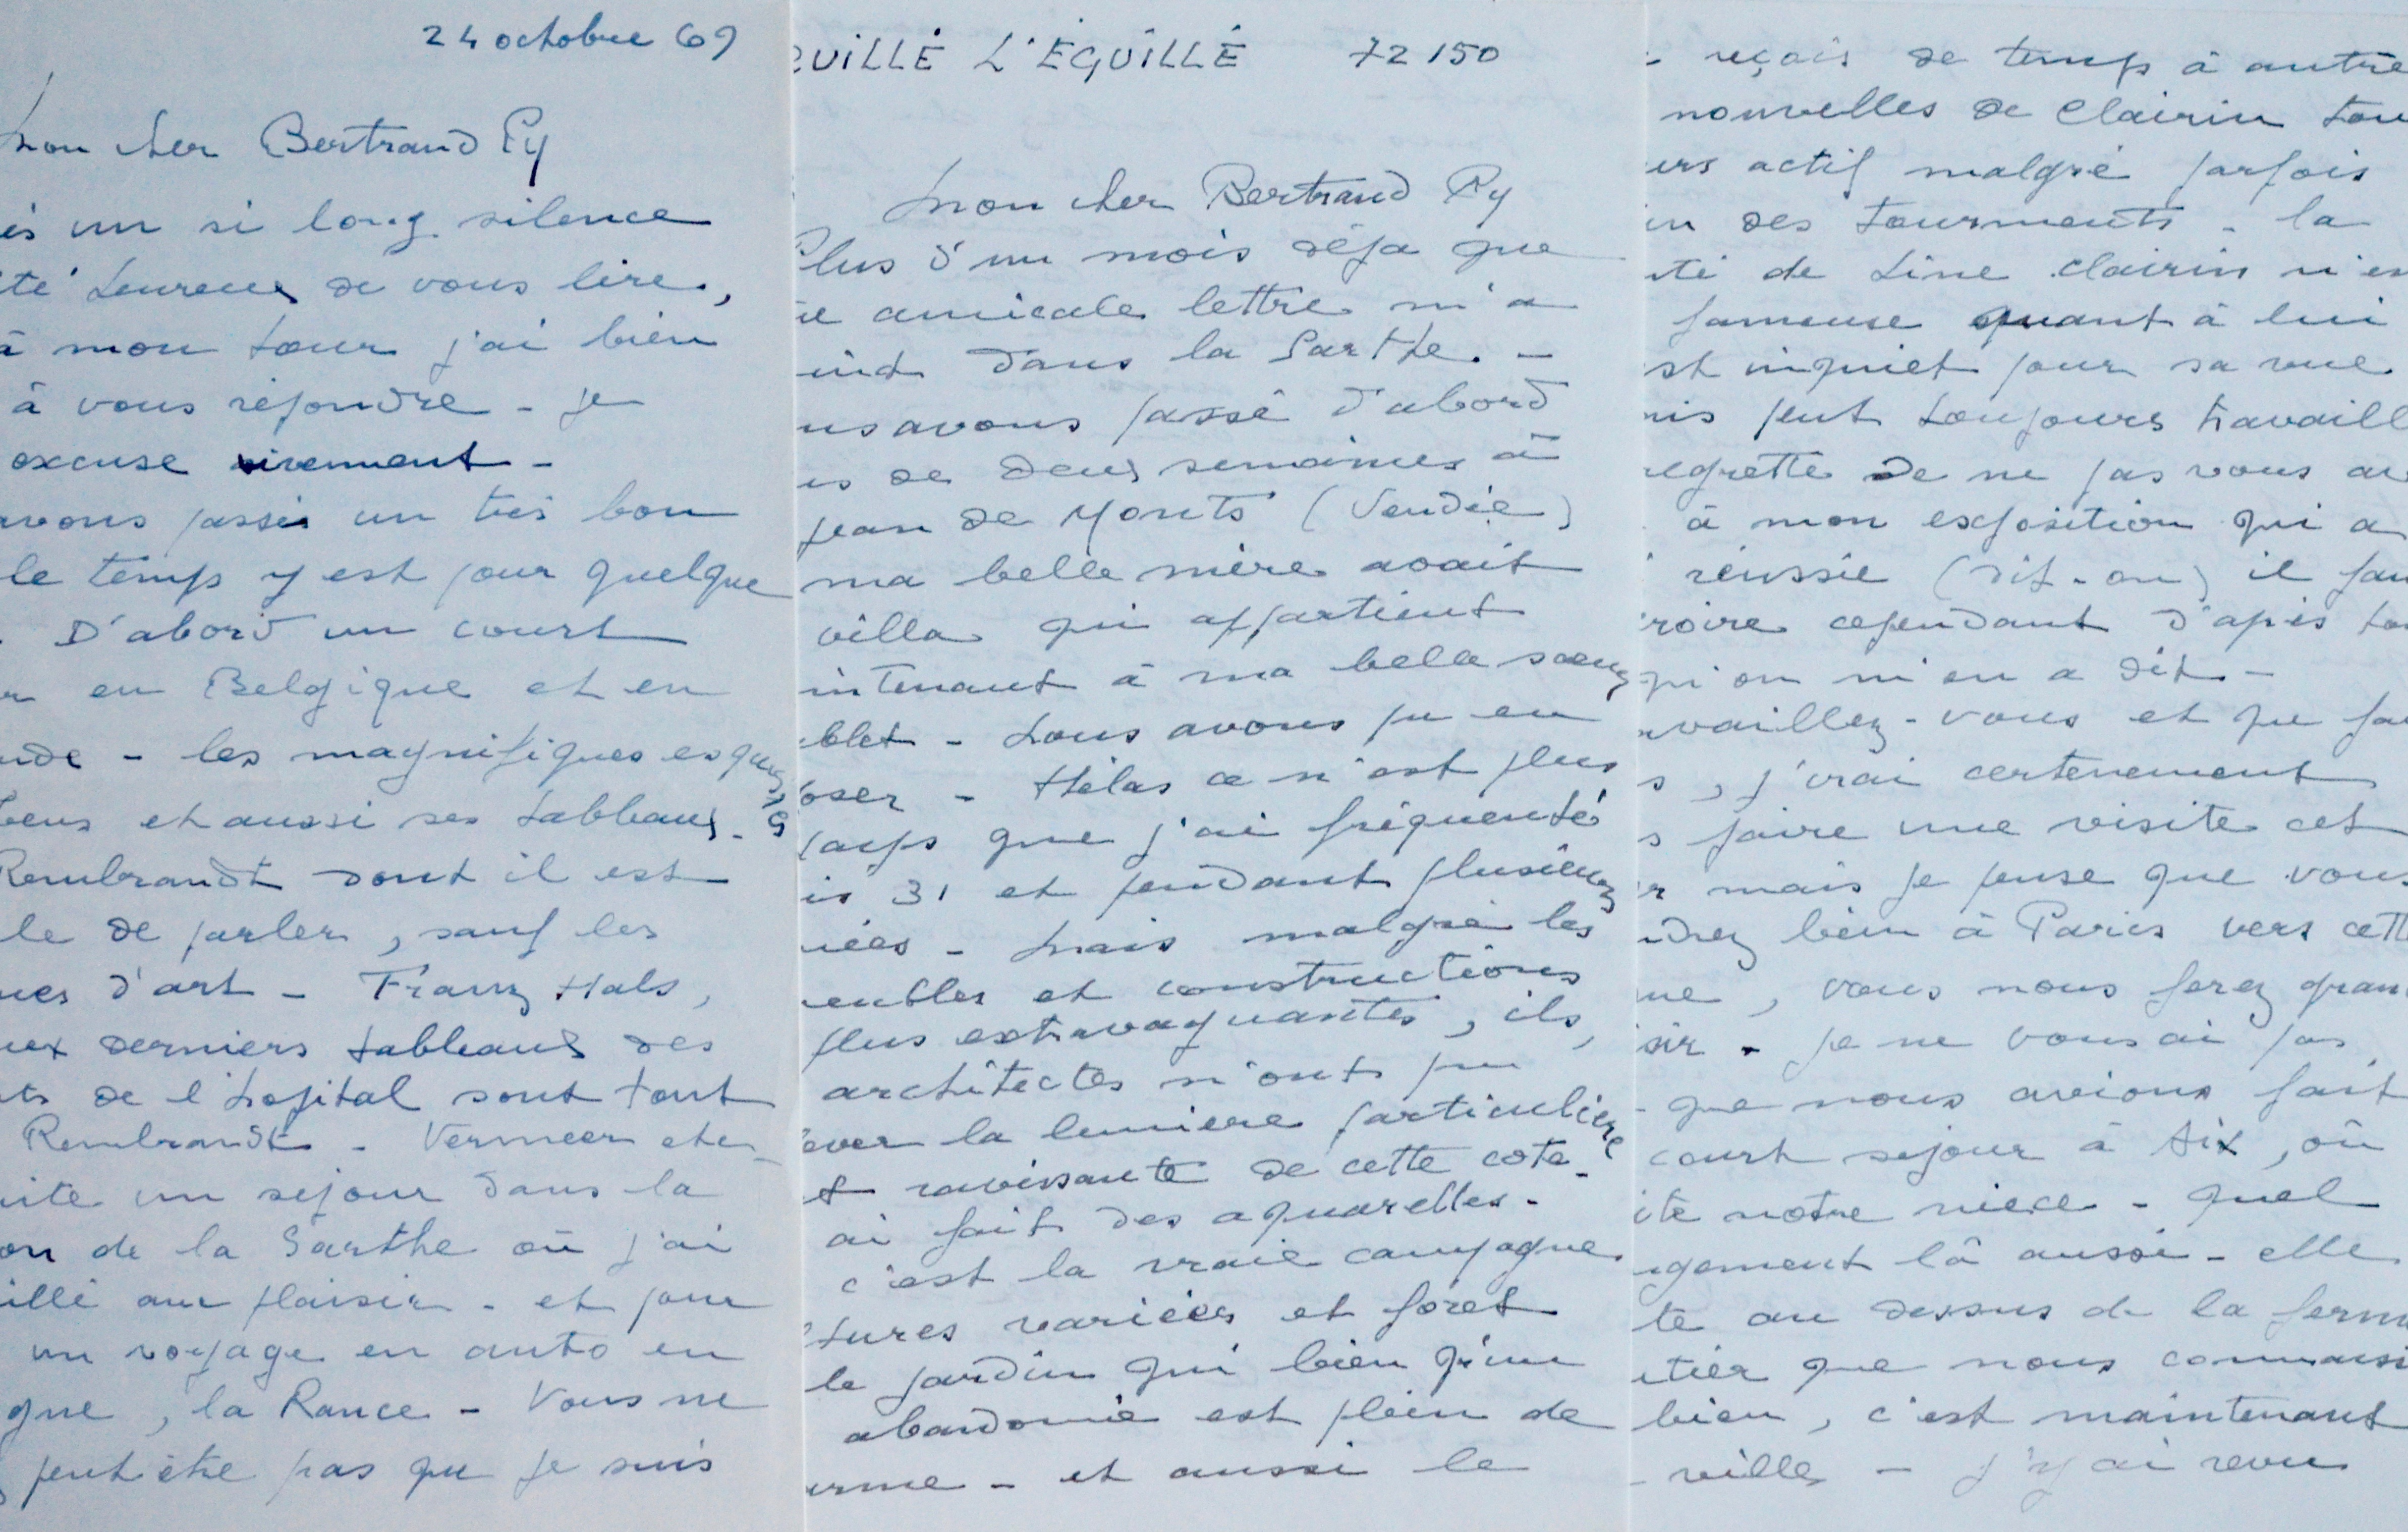 24 octobre 69
Mon cher Bertrand Py
ès un si long silence
té heureux de vous lire,
à mon tour j'ai bien
à vous répondre - je
excuse vivement -
avons passés un très bon
le temps y est pour quelque
. D'abord un court
r en Belgique et en
nde - les magnifiques esquisses
bens et aussi ses tableaux -
Rembrandt dont il est
le de parler, sauf les
ques d'art - Franz Hals,
ux derniers tableaux des
ts de l'hopital sont tout
Rembrandt - Vermeer etc -
uite un sejour dans la
on de la Sarthe où j'ai
illé au plaisir - et pour
un voyage en auto en
gne, la Rance - Vous ne
z peut être pas que je suis
UILLÉ L'ÉGUILLÉ 72150
Mon cher Bertrand Py
Plus d'un mois déja que
e amicale lettre m'a
int dans la Sarthe. -
us avons passé d'abord
us de deux semaines à
Jean de Monts (Vendée)
ma belle mère avait
villa qui appartient
intenant à ma belle soeur
blet - Nous avons pu en
oser - Hélas ce n'est plus
temps que j'ai fréquenté
is 31 et pendant plusieurs
nées - Mais malgré les
eubles et constructions
plus extravagantes, ils,
architectes n'ont pu
ever la lumiere particuliere
t ravissante de cette cote -
ai fait des aquarelles -
c'est la vraie campagne
tures variées et foret
le jardin qui bien qu'un
abandonné est plein de
arme - et aussi le
reçois de temps à autre
nouvelles de Clairin tou
urs actif malgré parfois
in des tourments - la
té de Line Clairin n'es
fameuse quant à lui
st inquiet pour sa vue
ais peut toujours travaill
regrette de ne pas vous av
à mon exposition qui a
réussie (dit-on) il fau
roire cependant d'après to
qu'on m'en a dit -
availlez-vous et que fa
s, j'irai certenement
s faire une visite cet
r mais je pense que vous
ndrez bien à Paris vers cett
ue, vous nous ferez gran
sir - Je ne vous ai pas
que nous avions fait
court sejour à Aix, où
ite notre niece - Quel
gement là aussi - elle
te au dessus de la ferm
tier que nous connaissi
bien, c'est maintenant
ville - J'y ai revu